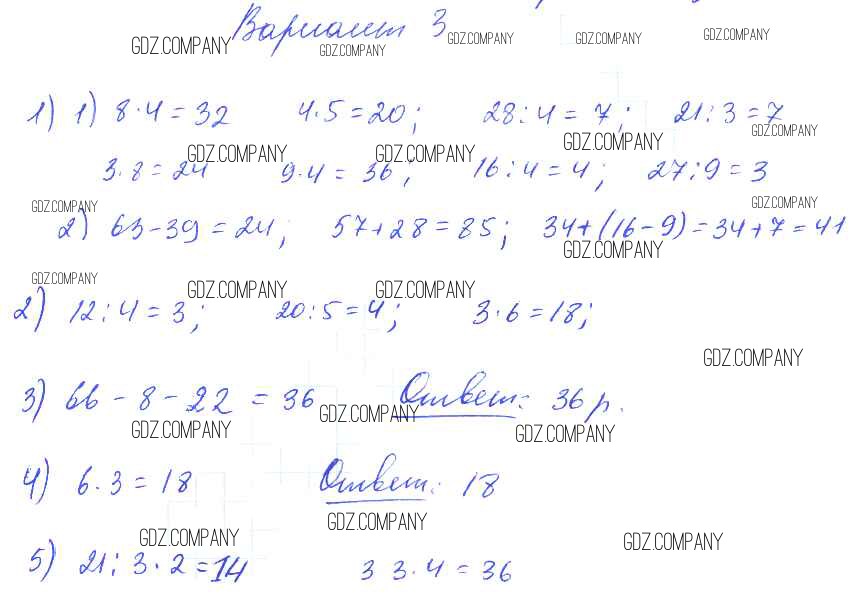 Вариант 3
1) 1) 8·4=32 4·5=20; 28:4=7; 21:3=7
3·8=24 9·4=36; 16:4=4; 27:9=3
2) 63-39=24; 57+28=85; 34+(16-9)=34+7=41
2) 12:4=3; 20:5=4; 3·6=18;
3) 66-8-22=36 Ответ: 36 р.
4) 6·3=18 Ответ: 18
5) 21:3·2=14 3 3·4=36
GDZ.COMPANY GDZ.COMPANY GDZ.COMPANY GDZ.COMPANY GDZ.COMPANY
GDZ.COMPANY GDZ.COMPANY GDZ.COMPANY GDZ.COMPANY
GDZ.COMPANY GDZ.COMPANY GDZ.COMPANY
GDZ.COMPANY GDZ.COMPANY GDZ.COMPANY
GDZ.COMPANY
GDZ.COMPANY GDZ.COMPANY GDZ.COMPANY
GDZ.COMPANY GDZ.COMPANY GDZ.COMPANY